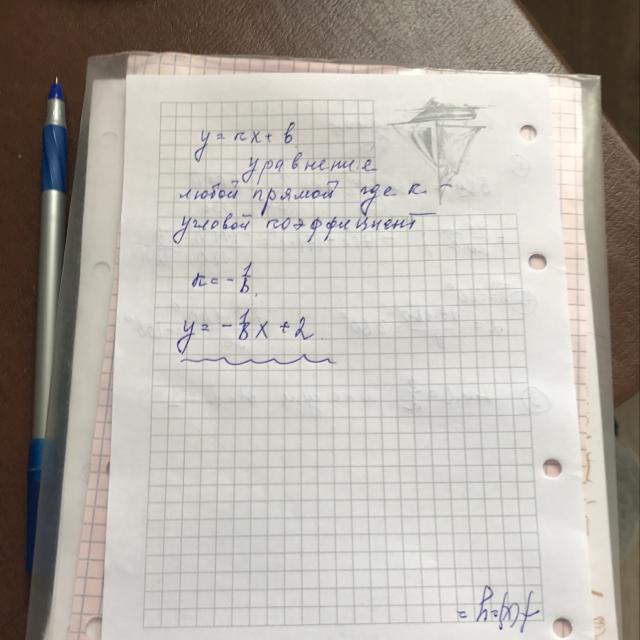 y = kx + b
уравнение
любой прямой где k -
угловой коэффициент
k = - 1/3.
y = - 1/3 x + 2.
f(x) = y =